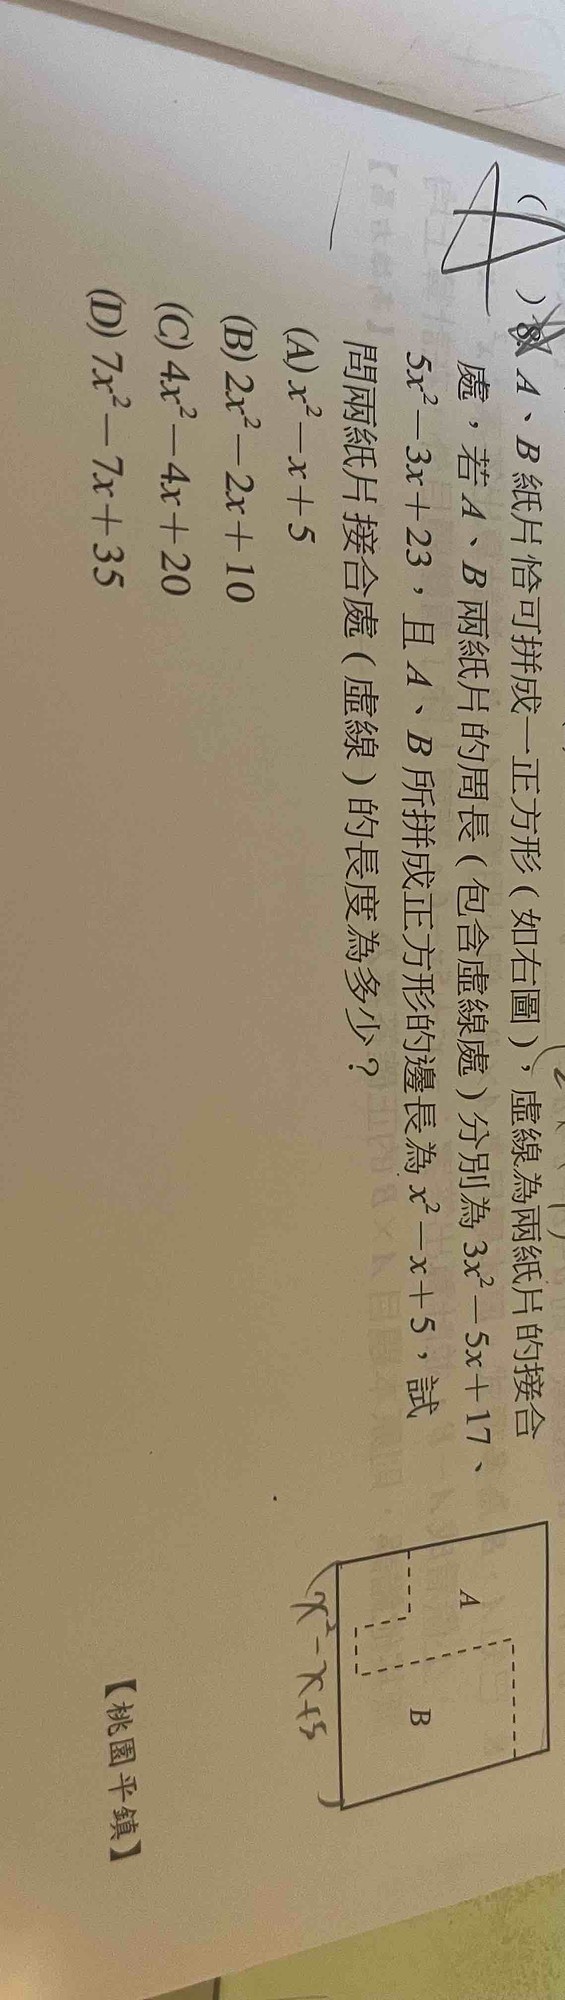 ( )8. A、B紙片恰可拼成一正方形(如右圖)，虛線為兩紙片的接合
處，若A、B兩紙片的周長(包含虛線處)分別為3x²－5x＋17、
5x²－3x＋23，且A、B所拼成正方形的邊長為x²－x＋5，試
問兩紙片接合處(虛線)的長度為多少？
(A) x²－x＋5
(B) 2x²－2x＋10
(C) 4x²－4x＋20
(D) 7x²－7x＋35
【桃園平鎮】
A
B
x²－x＋5